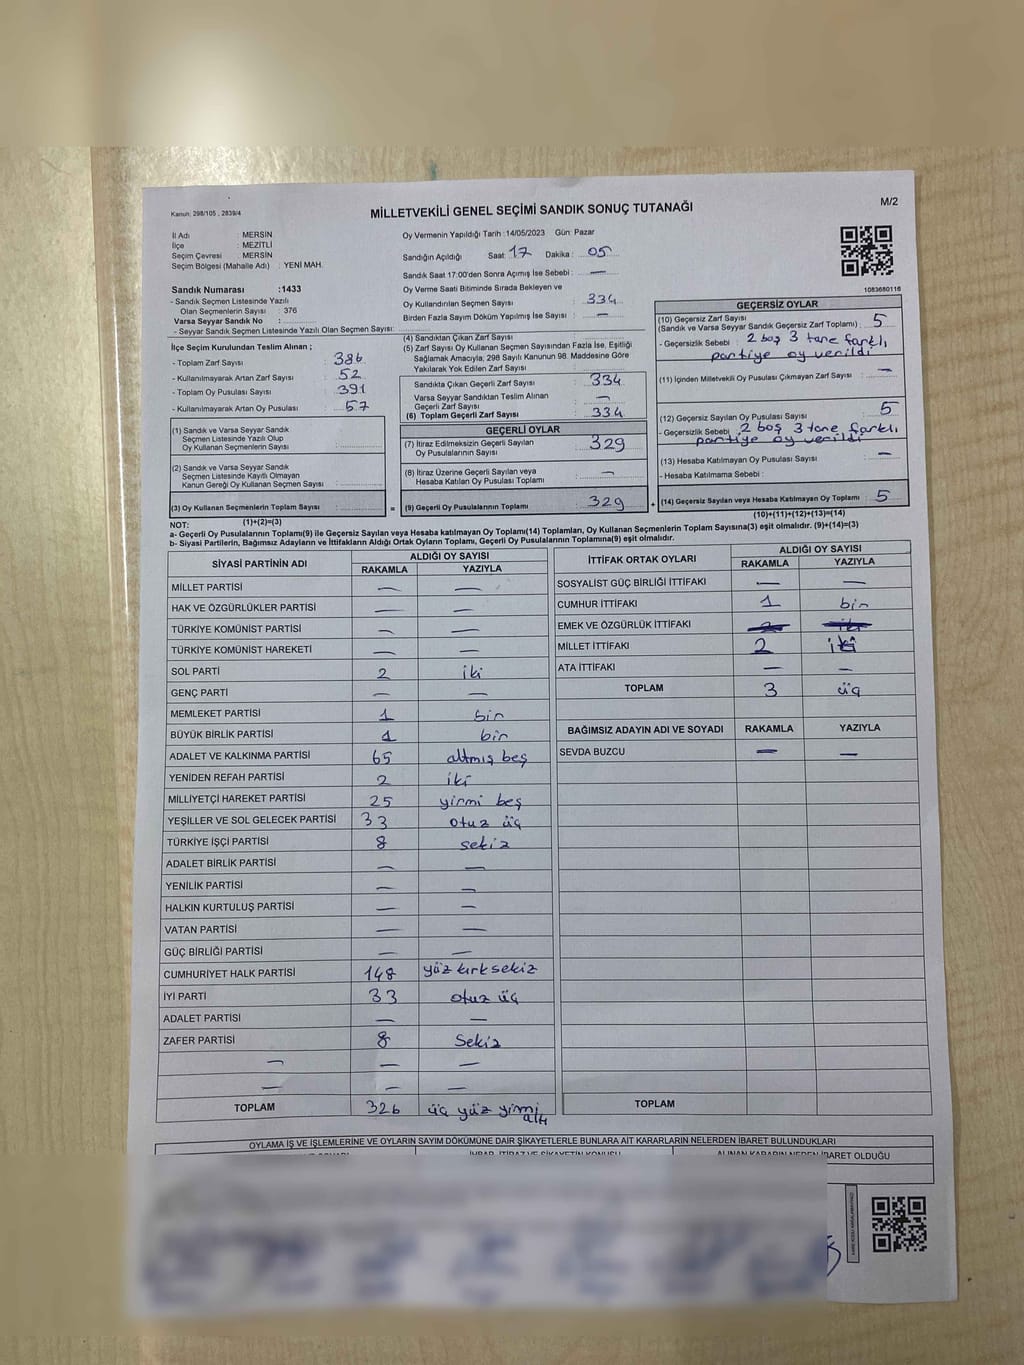 Kanun: 298/105 , 2839/4
MİLLETVEKİLİ GENEL SEÇİMİ SANDIK SONUÇ TUTANAĞI
M/2
İl Adı : MERSİN
İlçe : MEZİTLİ
Seçim Çevresi : MERSİN
Seçim Bölgesi (Mahalle Adı) : YENİ MAH.
Sandık Numarası :1433
- Sandık Seçmen Listesinde Yazılı
Olan Seçmenlerin Sayısı : 376
Varsa Seyyar Sandık No :
- Seyyar Sandık Seçmen Listesinde Yazılı Olan Seçmen Sayısı:
İlçe Seçim Kurulundan Teslim Alınan ;
- Toplam Zarf Sayısı : 386
- Kullanılmayarak Artan Zarf Sayısı : 52
- Toplam Oy Pusulası Sayısı : 391
- Kullanılmayarak Artan Oy Pusulası : 57
(1) Sandık ve Varsa Seyyar Sandık
Seçmen Listesinde Yazılı Olup
Oy Kullanan Seçmenlerin Sayısı :
(2) Sandık ve Varsa Seyyar Sandık
Seçmen Listesinde Kayıtlı Olmayan
Kanun Gereği Oy Kullanan Seçmen Sayısı :
(3) Oy Kullanan Seçmenlerin Toplam Sayısı :
(1)+(2)=(3)
Oy Vermenin Yapıldığı Tarih :14/05/2023 Gün: Pazar
Sandığın Açıldığı Saat : 17 Dakika : 05
Sandık Saat 17:00'den Sonra Açımış İse Sebebi : —
Oy Verme Saati Bitiminde Sırada Bekleyen ve
Oy Kullandırılan Seçmen Sayısı : 334
Birden Fazla Sayım Döküm Yapılmış İse Sayısı : —
(4) Sandıktan Çıkan Zarf Sayısı :
(5) Zarf Sayısı Oy Kullanan Seçmen Sayısından Fazla İse, Eşitliği
Sağlamak Amacıyla; 298 Sayılı Kanunun 98. Maddesine Göre
Yakılarak Yok Edilen Zarf Sayısı :
Sandıkta Çıkan Geçerli Zarf Sayısı : 334
Varsa Seyyar Sandıktan Teslim Alınan
Geçerli Zarf Sayısı : —
(6) Toplam Geçerli Zarf Sayısı : 334
GEÇERLİ OYLAR
(7) İtiraz Edilmeksizin Geçerli Sayılan
Oy Pusulalarının Sayısı : 329
(8) İtiraz Üzerine Geçerli Sayılan veya
Hesaba Katılan Oy Pusulası Toplamı : —
= (9) Geçerli Oy Pusulalarının Toplamı : 329 +
1083680116
GEÇERSİZ OYLAR
(10) Geçersiz Zarf Sayısı
(Sandık ve Varsa Seyyar Sandık Geçersiz Zarf Toplamı) : 5
- Geçersizlik Sebebi : 2 boş 3 tane farklı
partiye oy verildi
(11) İçinden Milletvekili Oy Pusulası Çıkmayan Zarf Sayısı : —
(12) Geçersiz Sayılan Oy Pusulası Sayısı : 5
- Geçersizlik Sebebi : 2 boş 3 tane farklı
partiye oy verildi
(13) Hesaba Katılmayan Oy Pusulası Sayısı : —
- Hesaba Katılmama Sebebi :
(14) Geçersiz Sayılan veya Hesaba Katılmayan Oy Toplamı : 5
(10)+(11)+(12)+(13)=(14)
NOT:
a- Geçerli Oy Pusulalarının Toplamı(9) ile Geçersiz Sayılan veya Hesaba katılmayan Oy Toplamı(14) Toplamları, Oy Kullanan Seçmenlerin Toplam Sayısına(3) eşit olmalıdır. (9)+(14)=(3)
b- Siyasi Partilerin, Bağımsız Adayların ve İttifakların Aldığı Ortak Oyların Toplamı, Geçerli Oy Pusulalarının Toplamına(9) eşit olmalıdır.
SİYASİ PARTİNİN ADI ALDIĞI OY SAYISI
RAKAMLA YAZIYLA
MİLLET PARTİSİ — —
HAK VE ÖZGÜRLÜKLER PARTİSİ — —
TÜRKİYE KOMÜNİST PARTİSİ — —
TÜRKİYE KOMÜNİST HAREKETİ — —
SOL PARTİ 2 iki
GENÇ PARTİ — —
MEMLEKET PARTİSİ 1 bir
BÜYÜK BİRLİK PARTİSİ 1 bir
ADALET VE KALKINMA PARTİSİ 65 altmış beş
YENİDEN REFAH PARTİSİ 2 iki
MİLLİYETÇİ HAREKET PARTİSİ 25 yirmi beş
YEŞİLLER VE SOL GELECEK PARTİSİ 33 otuz üç
TÜRKİYE İŞÇİ PARTİSİ 8 sekiz
ADALET BİRLİK PARTİSİ — —
YENİLİK PARTİSİ — —
HALKIN KURTULUŞ PARTİSİ — —
VATAN PARTİSİ — —
GÜÇ BİRLİĞİ PARTİSİ — —
CUMHURİYET HALK PARTİSİ 148 yüz kırk sekiz
İYİ PARTİ 33 otuz üç
ADALET PARTİSİ — —
ZAFER PARTİSİ 8 Sekiz
— — —
— — —
TOPLAM 326 üç yüz yirmi altı
İTTİFAK ORTAK OYLARI ALDIĞI OY SAYISI
RAKAMLA YAZIYLA
SOSYALİST GÜÇ BİRLİĞİ İTTİFAKI — —
CUMHUR İTTİFAKI 1 bir
EMEK VE ÖZGÜRLÜK İTTİFAKI
MİLLET İTTİFAKI 2 iki
ATA İTTİFAKI — —
TOPLAM 3 üç
BAĞIMSIZ ADAYIN ADI VE SOYADI RAKAMLA YAZIYLA
SEVDA BUZCU — —
TOPLAM
OYLAMA İŞ VE İŞLEMLERİNE VE OYLARIN SAYIM DÖKÜMÜNE DAİR ŞİKAYETLERLE BUNLARA AİT KARARLARIN NELERDEN İBARET BULUNDUKLARI
İHBAR, İTİRAZ VE ŞİKAYETİN KONUSU
ALINAN KARARIN NEDEN İBARET OLDUĞU